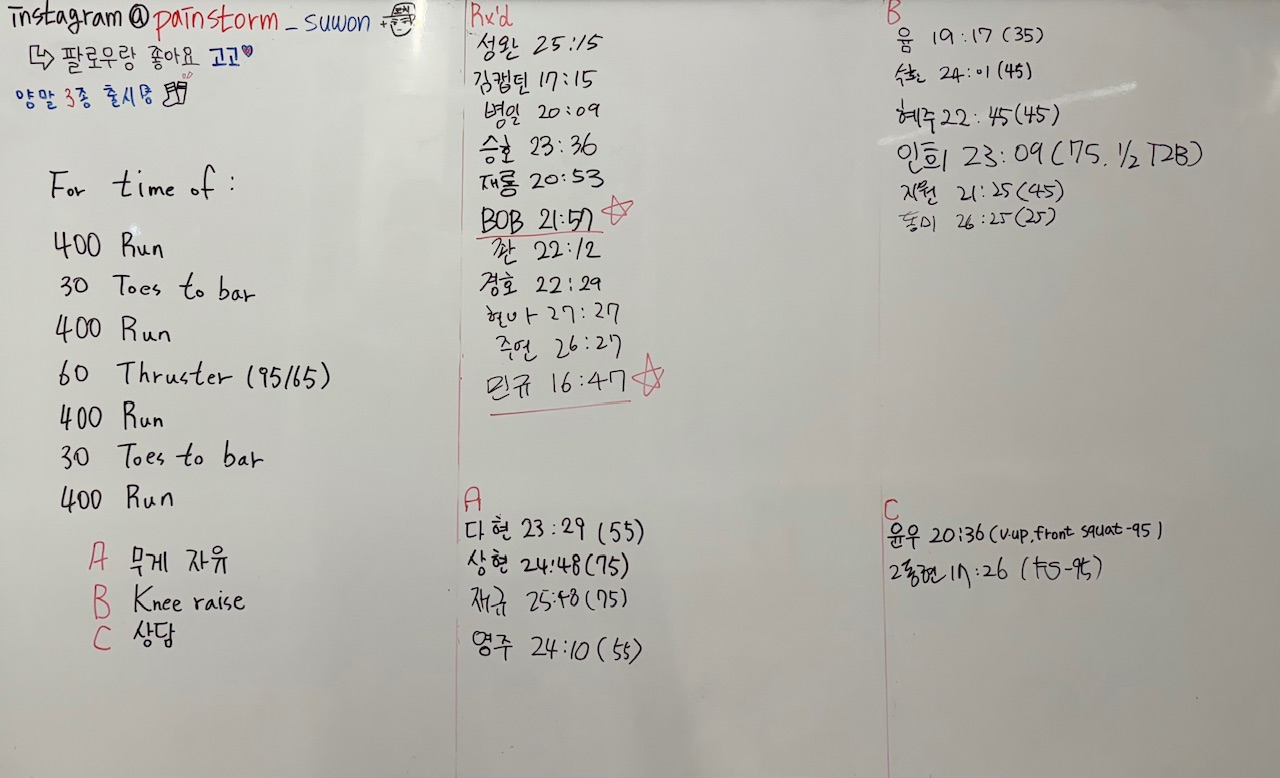 instagram@painstorm_suwon +
팔로우랑 좋아요 고고
양말 3종 출시중
For time of :
400 Run
30 Toes to bar
400 Run
60 Thruster (95/65)
400 Run
30 Toes to bar
400 Run
A 무게 자유
B Knee raise
C 상담
Rx'd
성완 25:15
김캡틴 17:15
병일 20:09
승호 23:36
재룡 20:53
BOB 21:57
좐 22:12
경호 22:29
현아 27:27
주연 26:27
민규 16:47
A
다현 23:29 (55)
상현 24:48(75)
재규 25:48(75)
영주 24:10(55)
B
윰 19:17(35)
수환 24:01(45)
혜주 22:45(45)
인희 23:09(75. 1/2 T2B)
지원 21:25(45)
동미 26:25(25)
C
윤우 20:36(v-up,front squat-95)
2동현 17:26 (FS-95)